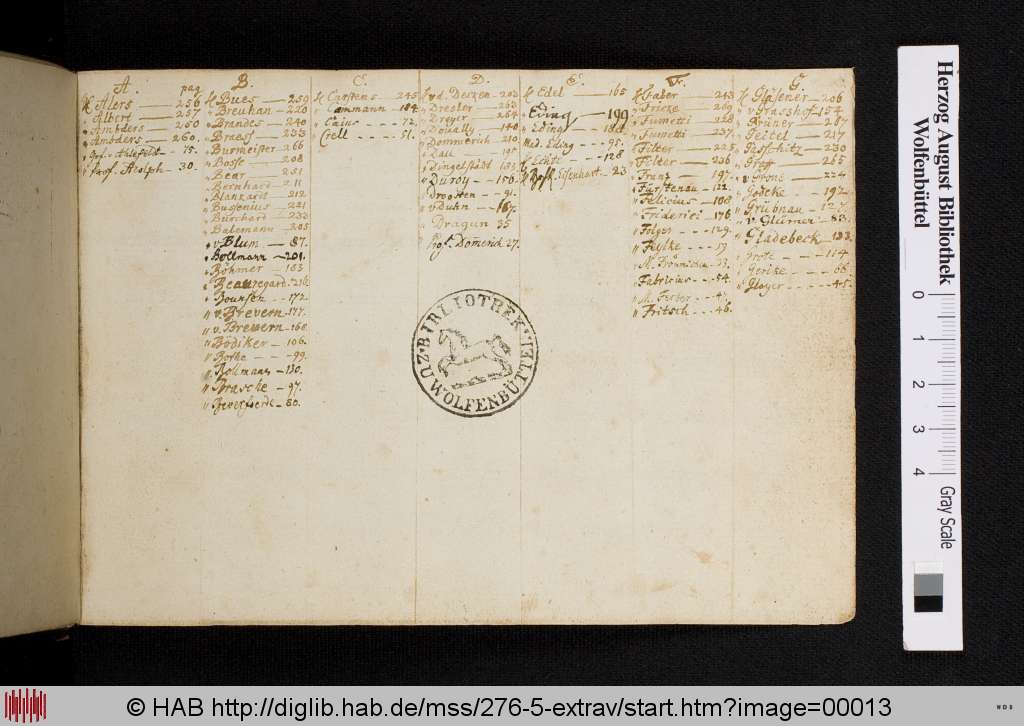 A. pag
H. Alers — 256
" Albert — 257
" Ambders — 250
" Ambders — 260.
" Prof. Ahlefeldt — 75.
" Prof. Adolph — 30.
B.
H. Bues — 259
" Breuhan — 220
" Brandes — 240
" Braess — 233
" Burmeister 266
" Bosse — 208
" Bear — 251
" Bernhard — 211
" Blanzard — 212
" Bussenius — 221
" Burchard — 233
" Balemann — 205
" v. Blum — 87.
" Bollmann — 201.
" Böhmer — 163
" Beauregard. 216
" Bounsen - - 172.
" v. Brevern 177.
" v. Brevern — 160.
" Bödiker — 106.
" Bothe - - - 99.
" Rollmann — 130.
" Brasche — 97.
" Beverförde — 80.
C.
H. Carstens — 245
" Cammann — 184.
" Caius - - - 72.
" Cell - - - - 51.
D.
" vd. Decken — 203
" Dresler — 263
" Dreyer — 264
" Doually — 140
" Dommerich — 210
" Dall — 157
" Dingelstädt
" Düroy — 156.
" Droosten - - 91.
" v Duhn - - 167.
" Dragun 35
Prof. Domerich 27.
E.
H. Edel — 165
Eding — 199
" Eding
Med. Eding - - - 95.
" Eckte - - - 128
Eisenhart - 23
F.
H. Faber — 243
" Fricke — 269
" Fumetti — 228
" Fumetti — 237.
" Filter — 225
" Filter — 236
" Franz — 197.
" Fürstenau — 122.
" Felicius — 108.
" Friderici — 176
" Folger - - - 129.
" Fuhlke - - 19
" Fabricius - - 54.
" M. Ferber
" Fritsch — 46.
G.
H. Gläsener — 206
" v. Grasshof — 154
" Grüneg — 267
" Geitel — 217
" Gosschitz — 230
" Graff — 265
" v Grone — 224
" Gödeke — 192
" Grübnau — 127.
" v. Glümer — 83.
" Gladebeck — 133.
" Grote - - - 114
" Gericke - - - 66.
" Gloyer - - - 45.
BIBLIOTHEK ZU WOLFENBÜTTEL
Herzog August Bibliothek
Wolfenbüttel
0 1 2 3 4
Gray Scale
© HAB http://diglib.hab.de/mss/276-5-extrav/start.htm?image=00013
WDB